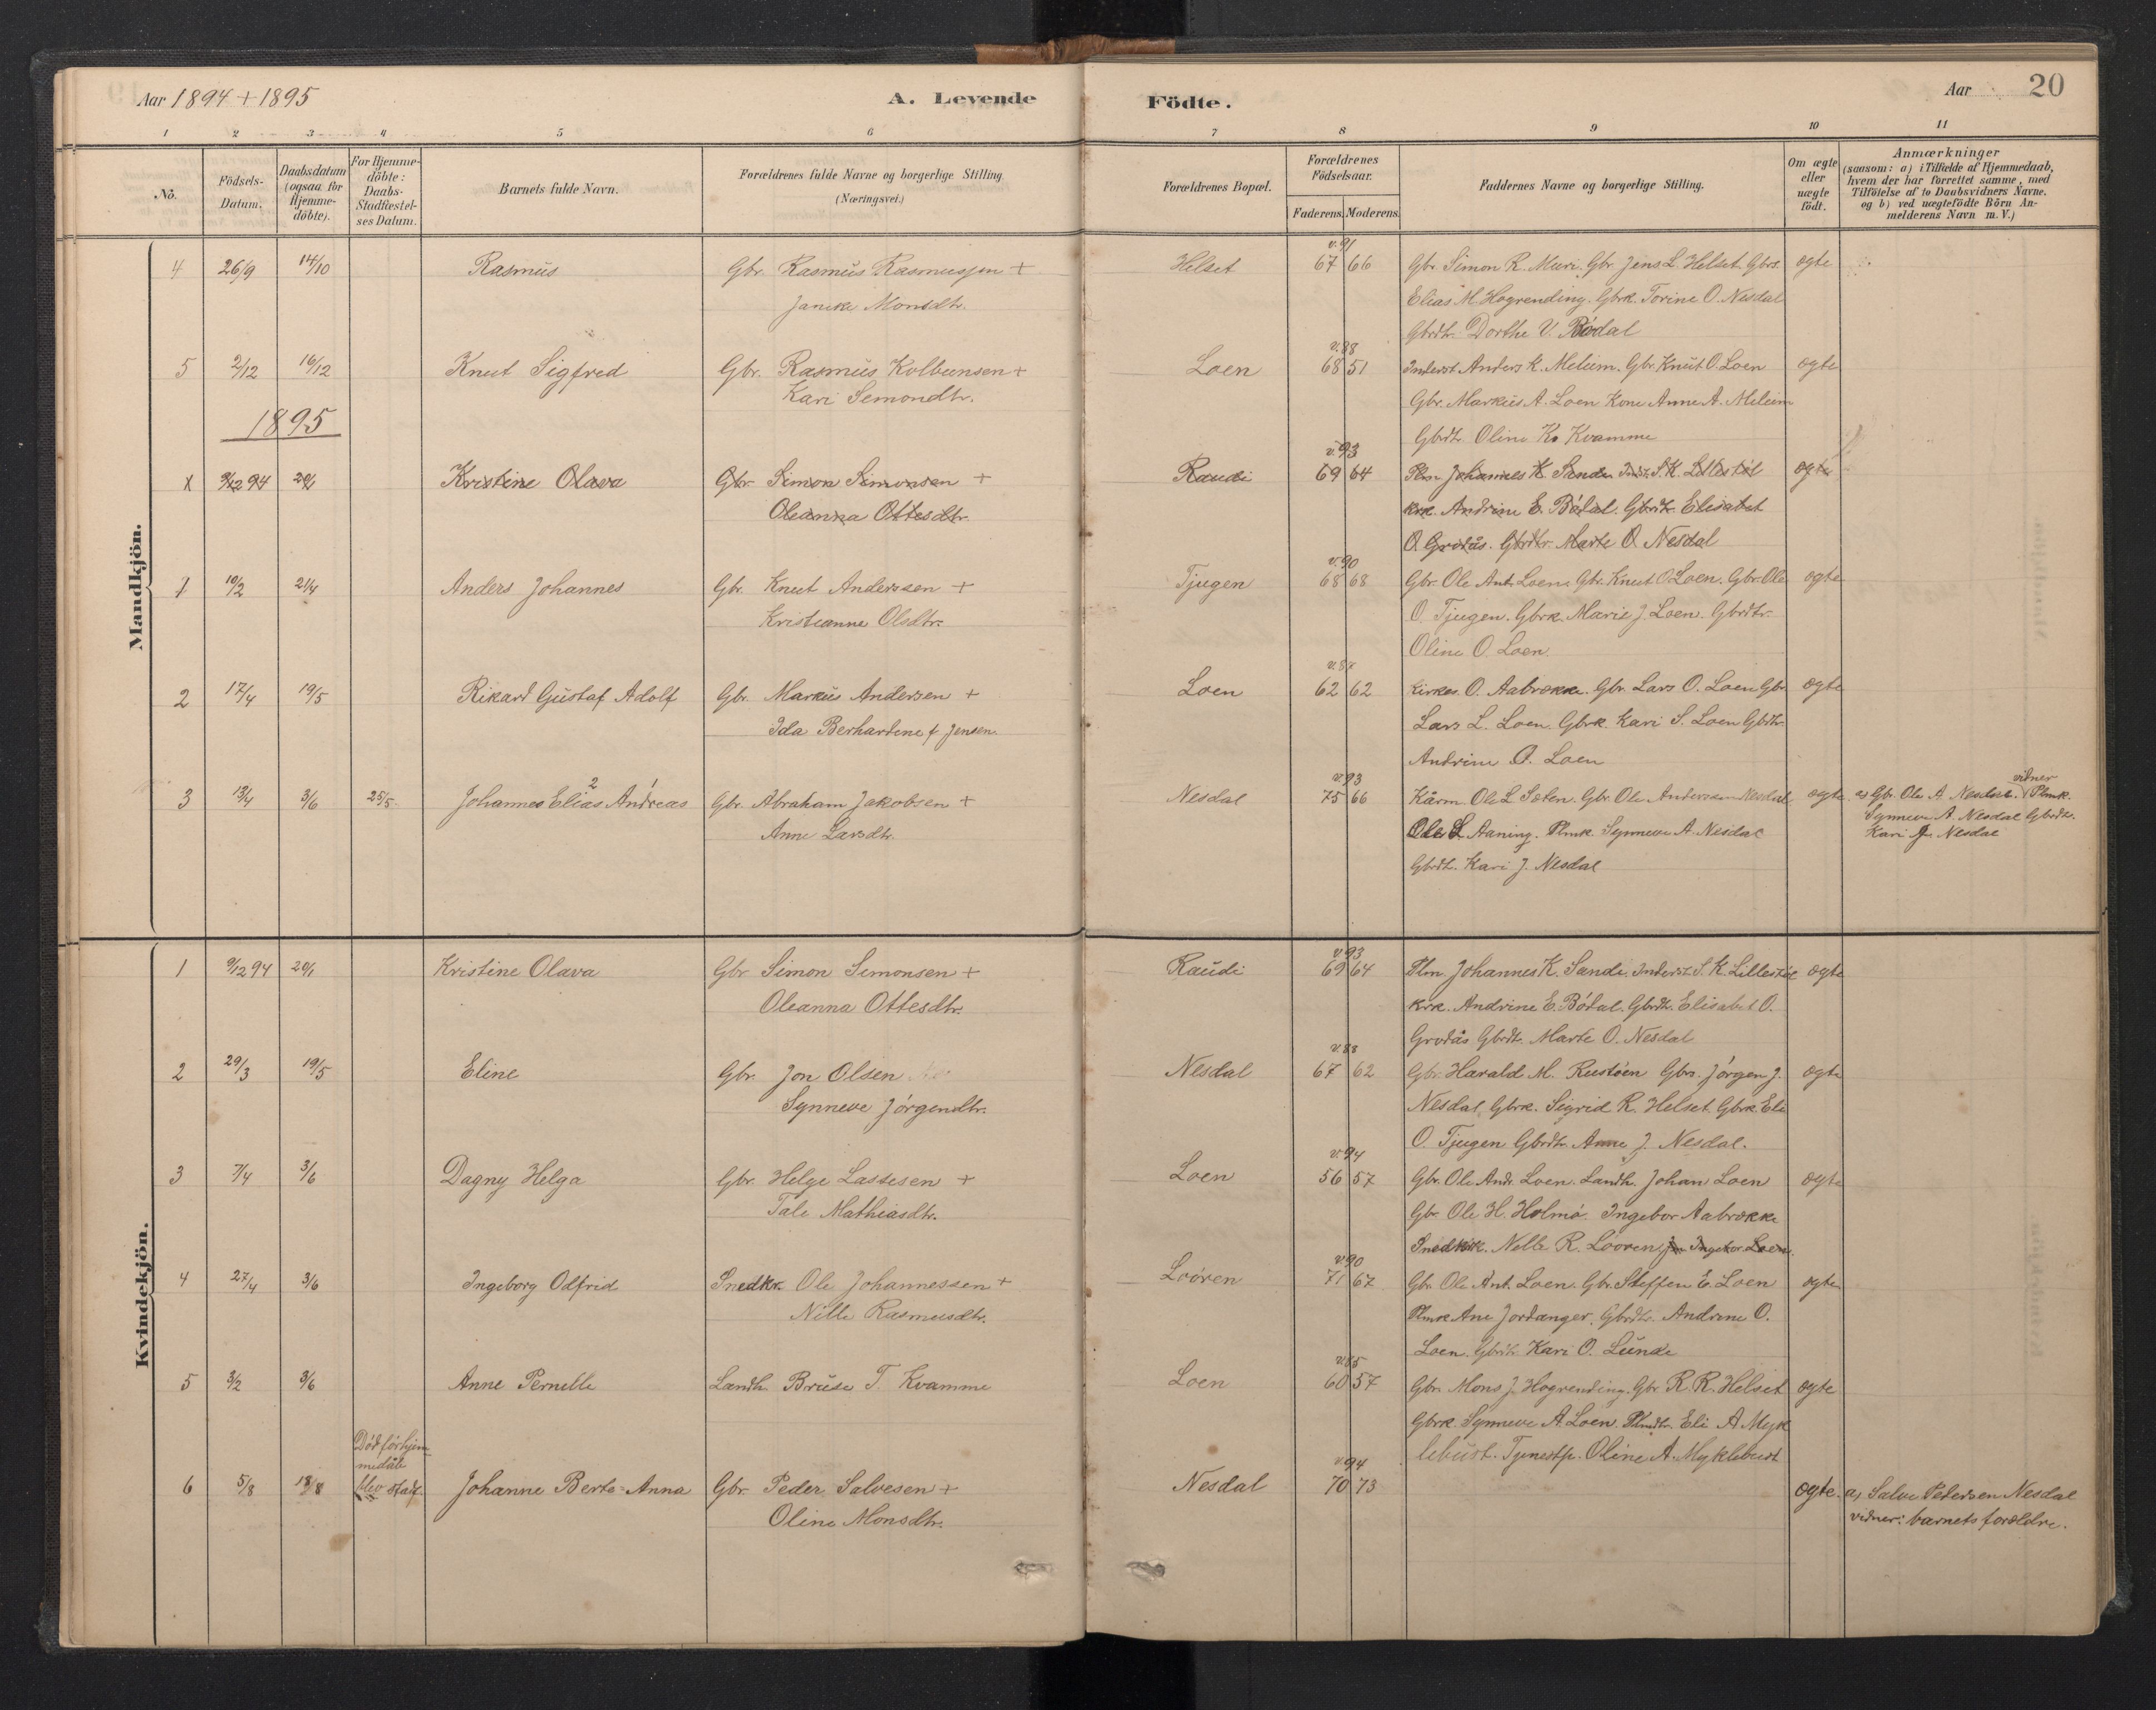 Aar 1894 + 1895
A. Levende
Födte.
Aar 20
1 2 3 4 5 6 7 8 9 10 11
No.
Födsels-
Datum.
Daabsdatum
(ogsaa for
Hjemme-
döbte).
For Hjemme-
döbte:
Daabs-
Stadfæstel-
ses Datum.
Barnets fulde Navn.
Forældrenes fulde Navne og borgerlige Stilling
(Næringsvei.)
Forældrenes Bopæl.
Forældrenes
Födselsaar.
Faderens. Moderens.
Faddernes Navne og borgerlige Stilling.
Om ægte
eller
uægte
födt.
Anmærkninger
(saasom: a) i Tilfælde af Hjemmedaab,
hvem der har forrettet samme, med
Tilföielse af to Daabsvidners Navne.
og b) ved uægtefödte Börn An-
melderens Navn m. V.)
Mandkjön.
v. 91
4 26/9 14/10 Rasmus Gbr. Rasmus Rasmussen + Helset 67 66 Gbr. Simon R. Muri. Gbr. Jens L Helset. Gbrs. ogte
Janike Monsdtr. Elias M. Hogrending. Gbrk. Torine O. Nesdal
Gbrdtr. Dorthe V. Bödal
v. 88
5 2/12 16/12 Knut Sigfred Gbr. Rasmus Kolbeinsen + Loen 68 51 Inderst Anders K. Melum. Gbr. Knut O. Loen ogte
Kari Semondtr. Gbr. Markus A. Loen Kone Anne A. Melum
1895
Gbrdtr. Oline K. Kvamme
v. 93
1 9/12 94 20/1 Kristine Olava Gbr Simon Simonsen + Raudi 69 64 Plm Johannes K Sande Indst. S. K. Lillestöl ogte
Oleanna Ottesdtr. krk. Andrine E. Bödal. Gbrdtr. Elisabet
O. Grodås. Gbrdtr. Marte O. Nesdal
v. 90
1 10/2 21/4 Anders Johannes Gbr. Knut Anderssen + Tjugen 68 68 Gbr. Ole Ant. Loen. Gbr. Knut O Loen. Gbr. Ole ogte
Kristianne Olsdtr. O. Tjugen. Gbrk. Marie J. Loen. Gbrdtr.
Oline O. Loen.
2 17/4 19/5 Rikard Gustaf Adolf Gbr. Markus Andersen + Loen 62 62 Kirkes. O. Aabrekke. Gbr. Lars O. Loen Gbr. ogte
Ida Berhardine f Jensen Lars L. Loen. Gbrk Kari S. Loen Gbrdtr.
Andrine O. Loen
v. 93
3 13/4 3/6 25/5 Johannes Elias 2 Andreas 1 Gbr. Abraham Jakobsen + Nesdal 75 66 Kårm. Ole L Sæten. Gbr. Ole Anderssen Nesdal ogte a) Gbr. Ole A Nesdal. vidner Plmk.
Anne Larsdtr. Ole L Aaning. Plmk. Synneve A. Nesdal Synneve A. Nesdal Gbrdtr.
Gbrdtr. Kari J. Nesdal Kari J. Nesdal
Kvindekjön.
v. 93
1 9/12 94 20/1 Kristine Olava Gbr Simon Simonsen + Raudi 69 64 Plm. Johannes K. Sande. Inderst. S. K. Lillestöl ogte
Oleanna Ottesdtr. krk. Andrine E. Bödal. Gbrdtr. Elisabet O.
Grodås Gbrdtr. Marte O. Nesdal
v. 88
2 29/3 19/5 Eline Gbr. Jon Olsen Nesdal 67 62 Gbr. Harald M. Rustöen Gbr. Jörgen J. ogte
Synneve Jörgensdtr. Nesdal, Gbrk. Sigrid R. Helset, Gbrk Eli
O. Tjugen Gbrdtr. Anne J. Nesdal.
v. 94
3 7/4 3/6 Dagny Helga Gbr. Helge Lassesen + Loen 56 57 Gbr. Ole Andr. Loen. Landh. Johan Loen ogte
Tale Mathiasdtr. Gbr. Ole H. Holmö. Ingebor Aabrekke
Snedkrk. Nelle R. Looren, Ingebor Loen.
v. 90
4 27/4 3/6 Ingeborg Odfrid Snedkr. Ole Johannessen + Looren 71 67 Gbr. Ole Ant. Loen. Gbr. Steffen E. Loen ogte
Nille Rasmusdtr. Plmk Ane Jordanger. Gbrdtr. Andrine O.
Loen. Gbrdtr. Kari O. Lunde
v. 85
5 3/2 3/6 Anne Pernelle Landh. Bruse T. Kvamme Loen 60 57 Gbr. Mons J. Hogrending. Gbr R. R. Helset ogte
Gbrk. Synneve A. Loen. Plmdtr. Eli A Myk
lebust. Tjenestp. Oline A. Myklebust
Död för hjem
medåb
blev stad.
v. 94
6 5/8 18/8 Johanne Berte-Anna Gbr. Peder Salvesen + Nesdal 70 73 ogte. a) Salve Pedersen Nesdal
Oline Monsdtr. vidner: barnets foreldre.